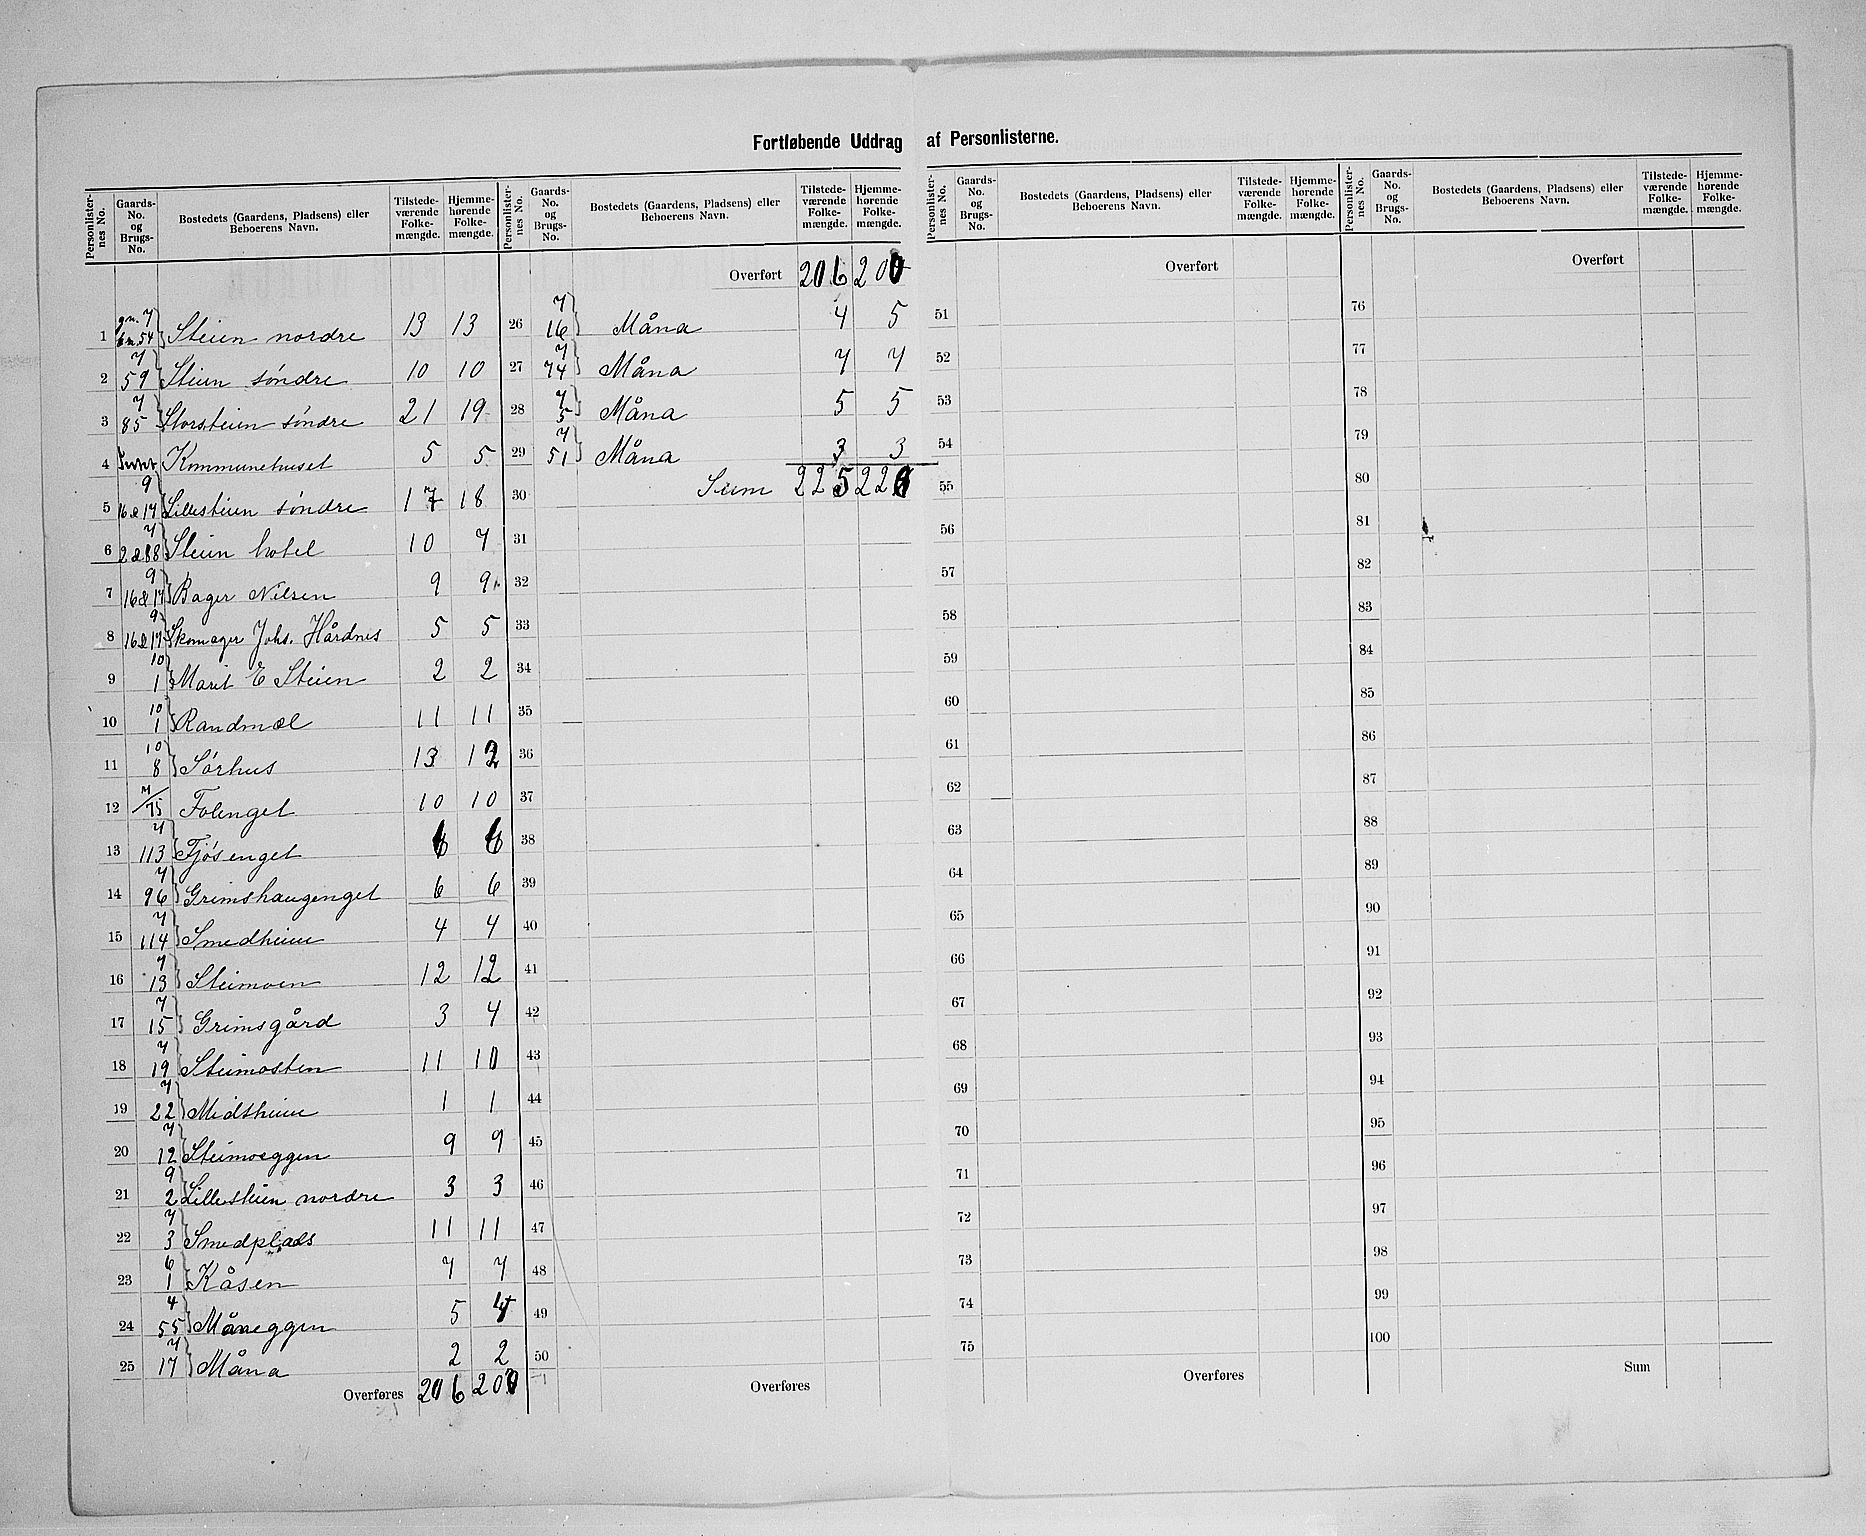 Fortløbende Uddrag af Personlisterne.
Personlister-nes No. | Gaards-No. og Brugs-No. | Bostedets (Gaardens, Pladsens) eller Beboerens Navn. | Tilstede-værende Folke-mængde. | Hjemme-hørende Folke-mængde.
1 gn. 7 bn. 54 Steien nordre 13 13
2 7 59 Steien søndre 10 10
3 7 85 Storsteien søndre 21 19
4 Kommunehuset 5 5
5 9 16&17 Lillesteien søndre 17 18
6 7 2&88 Steien hotel 10 7
7 9 16&17 Bager Nilsen 9 9
8 9 16&17 Skomager Johs. Hårdnes 5 5
9 10 1 Marit E Steien 2 2
10 10 1 Randmæl 11 11
11 10 8 Sørhus 13 12
12 7/75 Folenget 10 10
13 7 113 Fjøsenget 6 6
14 7 96 Grimshaugenget 6 6
15 7 114 Smedheim 4 4
16 7 13 Steimoen 12 12
17 7 15 Grimsgård 3 4
18 7 19 Steimosten 11 10
19 7 22 Midtheim 1 1
20 7 12 Steimoeggen 9 9
21 9 2 Lillesteien nordre 3 3
22 7 3 Smedplads 11 11
23 6 1 Kåsen 7 7
24 4 55 Måneggen 5 4
25 7 17 Måna 2 2
Overføres 206 200
Personlister-nes No. | Gaards-No. og Brugs-No. | Bostedets (Gaardens, Pladsens) eller Beboerens Navn. | Tilstede-værende Folke-mængde. | Hjemme-hørende Folke-mængde.
Overført 206 200
26 7 16 Måna 4 5
27 7 74 Måna 7 7
28 7 5 Måna 5 5
29 7 51 Måna 3 3
30 Sum 225 220
31
32
33
34
35
36
37
38
39
40
41
42
43
44
45
46
47
48
49
50
Overføres
Personlister-nes No. | Gaards-No. og Brugs-No. | Bostedets (Gaardens, Pladsens) eller Beboerens Navn. | Tilstede-værende Folke-mængde. | Hjemme-hørende Folke-mængde.
Overført
51
52
53
54
55
56
57
58
59
60
61
62
63
64
65
66
67
68
69
70
71
72
73
74
75
Overføres
Personlister-nes No. | Gaards-No. og Brugs-No. | Bostedets (Gaardens, Pladsens) eller Beboerens Navn. | Tilstede-værende Folke-mængde. | Hjemme-hørende Folke-mængde.
Overført
76
77
78
79
80
81
82
83
84
85
86
87
88
89
90
91
92
93
94
95
96
97
98
99
100
Sum